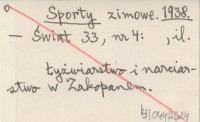 Sporty zimowe. 1938.
— Świat 33, nr 4: , il.
Łyżwiarstwo i narciar-
stwo w Zakopanem.